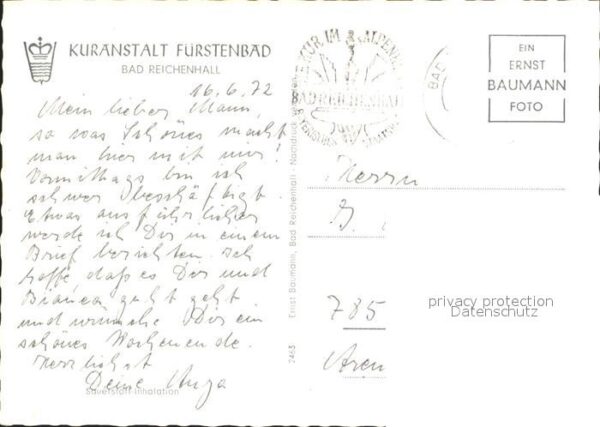 KURANSTALT FÜRSTENBAD
BAD REICHENHALL
16.6.72
Mein lieber Mann,
so was Schönes macht
man hier mit mir!
Vormittags bin ich
schwer beschäftigt.
Etwas ausführlicher
werde ich Dir in einem
Brief berichten. Ich
hoffe daß es Dir und
Bianca gut geht
und wünsche Dir ein
schönes Wochenende.
Herzlichst
Deine
Sauerstoff-Inhalation
Ernst Baumann, Bad Reichenhall - Nachdruck
2463
BAD REICHENHALL
BAD
EIN
ERNST
BAUMANN
FOTO
Herrn
785
privacy protection
Datenschutz